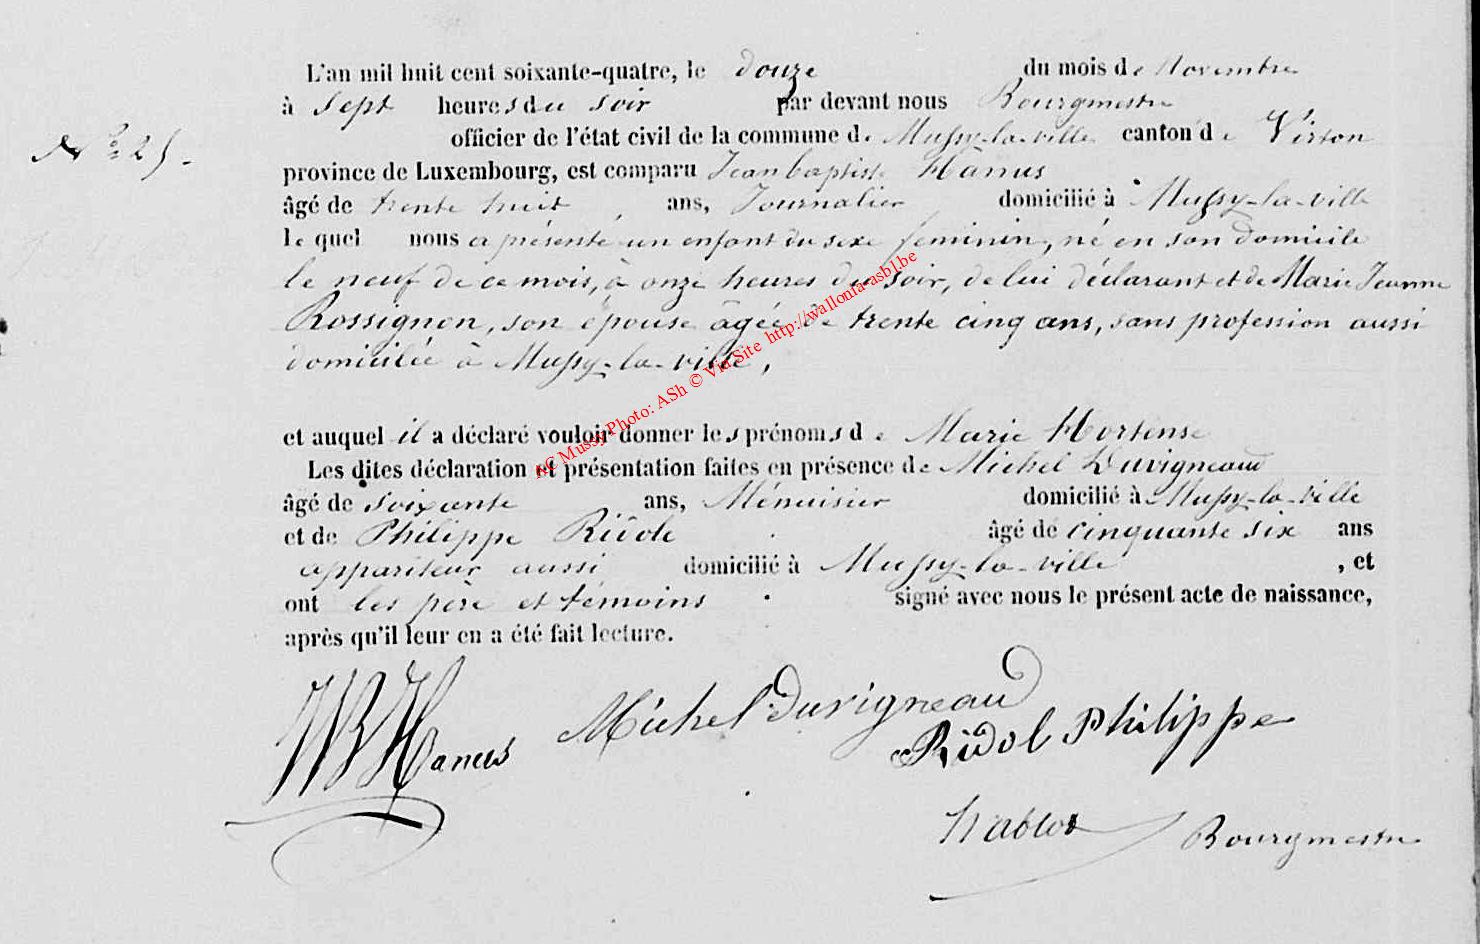 L'an mil huit cent soixante-quatre, le douze du mois de Novembre
à Sept heures du soir par devant nous Bourgmestre
N° 25. officier de l'état civil de la commune de Mussy-la-ville canton de Virton
province de Luxembourg, est comparu Jean baptiste Hanus
âgé de trente huit ans, Journalier domicilié à Mussy-la-ville
le quel nous a présenté un enfant du sexe feminin, né en son domicile
le neuf de ce mois, à onze heures du soir, de lui déclarant et de Marie Jeanne
Rossignon, son épouse âgée de trente cinq ans, sans profession aussi
domiciliée à Mussy-la-ville,
et auquel il a déclaré vouloir donner les prénoms de Marie Hortense
Les dites déclaration et présentation faites en présence de Michel Duvigneaud
âgé de soixante ans, Ménuisier domicilié à Mussy-la-ville
et de Philippe Ridole âgé de cinquante six ans
appariteur aussi domicilié à Mussy-la-ville, et
ont les père et témoins signé avec nous le présent acte de naissance,
après qu'il leur en a été fait lecture.
JB Hanus Michel Duvigneaud
Ridol Philippe
Bourgmestre
AC Mussy Photo: ASh © Via Site http://wallonia-asbl.be